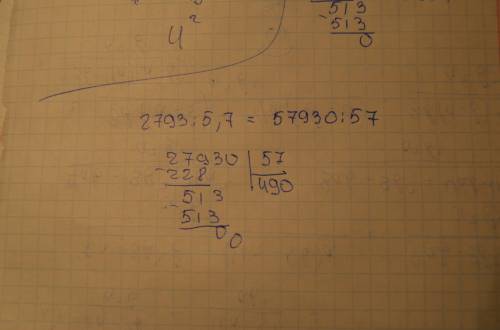 513
- 513
0
2793:5,7 = 57930:57
27930 | 57
- 228 | 490
513
- 513
00